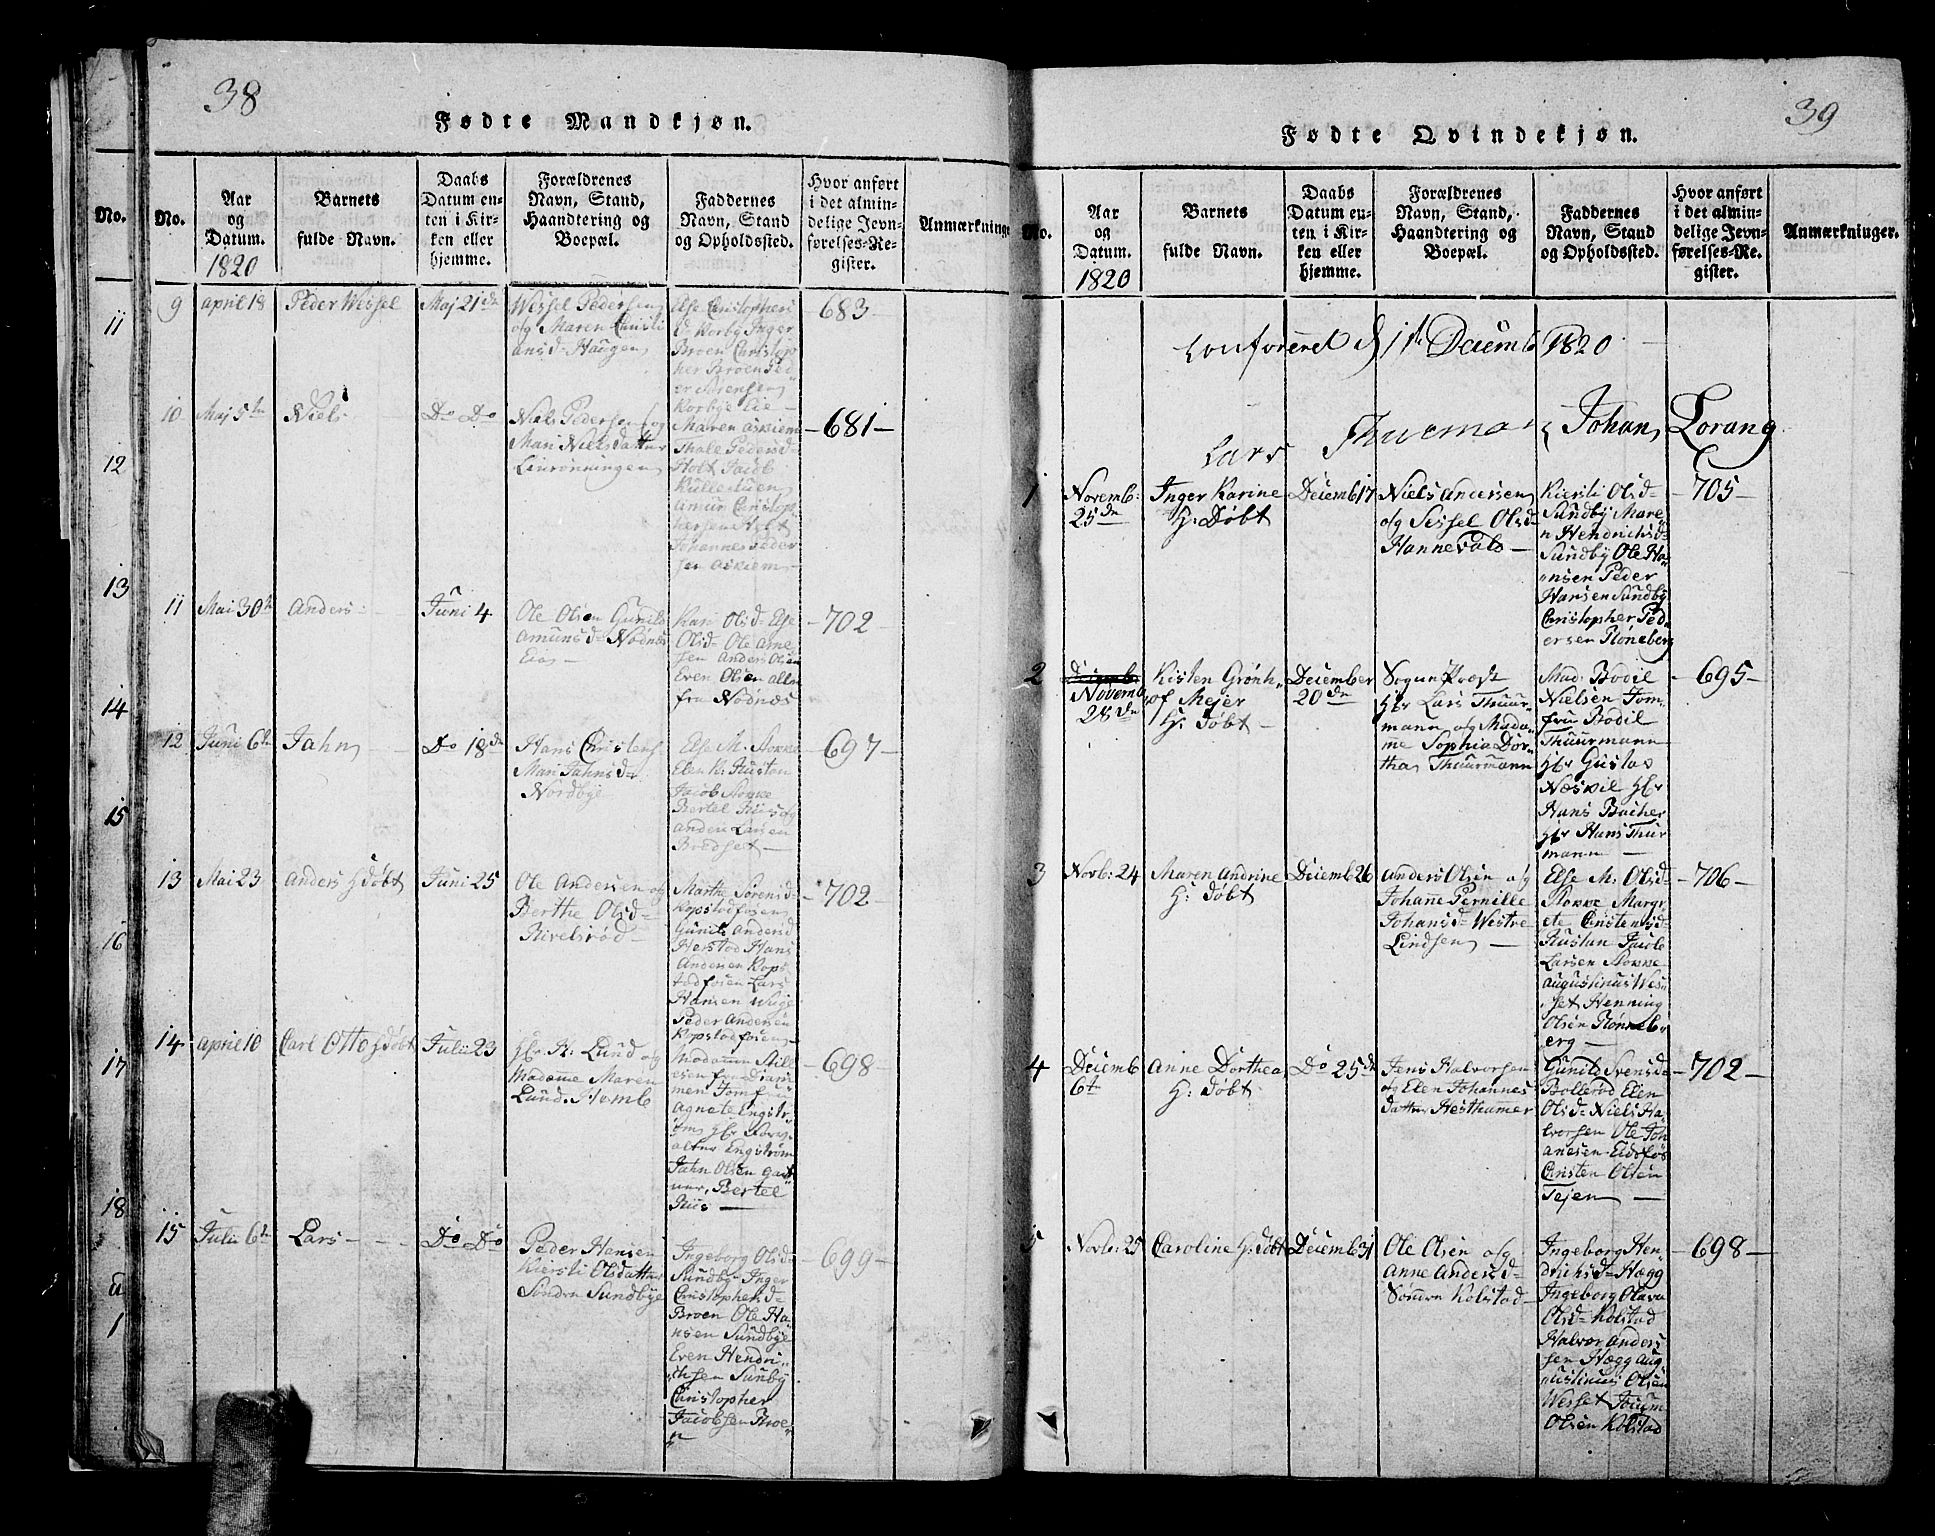 38
Fødte Mandkjøn.
No.
No.
Aar
og
Datum.
1820
Barnets
fulde Navn.
Daabs
Datum en-
ten i Kir-
ken eller
hjemme.
Forældrenes
Navn, Stand,
Haandtering og
Boepæl.
Faddernes
Navn, Stand
og Opholdssted.
Hvor anført
i det almin-
delige Jevn-
førelses-Re-
gister.
Anmærkninge
11
12
13
14
15
16
17
18
1
9
april 18
Peder Wessel
Maj 21de
Wessel Pedersen
og Maren Christi
ansd= Haugen
Else Christophers
d= Korby Inger
Broen Christop
her Broen Ped
er Sørensen
Korbye Eie—
683—
10
Maj 5te
Niels
Do Do
Niels Pedersen og
Mari Nielsdatter
Linrønningen
Maren Askiem
Thale Pedersd=
Holt Jacob
Kullebuen
Amun Christop
hersen Holt
Johannes Peder
sen Askiem—
—681—
11
Mai 30te
Anders
Juni 4
Ole Olsen Gunild
Amunsd= Nødnæs
Eie—
Kari Olsd= Else
Olsd= Ole Arne
sen Anders Olsen
Even Olsen alle
fra Nødnæs
—702—
12
Juni 6te
Jahn
Do 18de
Hans Christens
Mari Jahnsd=
Nordbye
Else M. Stokke
Elen K. Rustan
Jacob Stokke
Bertel Riis og
Anders Larsen
Bredset—
—697—
13
Mai 23
Anders H døbt
Juni 25
Ole Andersen og
Berthe Olsd=
Rivelsrød—
Marthe Sørensd=
Kopstadfosen
Gunild Andersd
Herstad Hans
Andersen Kops
tadfosen Lars
Hansen Wiige
Peder Andersen
Kopstadfosen
—702—
14
april 10
Carl Otto H døbt
Julii 23
Hr H. Lund og
Madamme Maren
Lund. Homb
Madamm Niel
sen fra Dram
men Jomfru
Agnete Engstr
øm Hr Forv
alter Engstrøm
Jahn Olsen Gart
ner, Bertel
Riis—
—698—
15
Julii 6te
Lars—
Do Do
Peder Hansen
Kiersti Olsdatter
Søndre Sundbye
Ingeborg Olsd=
Sundby Inger
Christophersd=
Broen Ole Ha
nsen Sundbye
Even Hendri
chsen Sunby
Christopher
Jacobsen Broe
n
—699—
39
Fødte Qvindekjøn.
No.
Aar
og
Datum.
1820
Barnets
fulde Navn.
Daabs
Datum en-
ten i Kir-
ken eller
hjemme.
Forældrenes
Navn, Stand,
Haandtering og
Boepæl.
Faddernes
Navn, Stand
og Opholdssted.
Hvor anført
i det almin-
delige Jevn-
førelses-Re-
gister.
Anmærkninger.
Confereret d 1te Decemb 1820
Lars Thurman Johan Lorang
1
Novemb:
25de
Inger Karine
H: Døbt
Decemb 17
Niels Andersen
og Sissel Olsd=
Hannevald—
Kiersti Olsd=
Sundby Mare
n Hendrichsd=
Sundby Ole Ha
nsen Peder
Hansen Sundby
Christopher Ped
ersen Røneberg
—705—
2
Decemb
Novemb
28de
Kisten Grønh
of Mejer
H: Døbt—
December
20de
Sogne Præst
Hr Lars Thuur
mann og Mada
me Sophia Dor
thea Thuurmann
Mad. Bodil
Nielsen Jom
fru Bodil
Thuurmann
Hr Gustav
Næskil Hr
Hans Bacher
Hr Hans Thur
mann—
—695—
3
Novb: 24
Maren Andrine
H: Døbt
Decemb 26
Anders Olsen og
Johanne Pernille
Johansd= Westre
Lindsen—
Else M. Olsd=
Stokke Margr
ete Christensd=
Rustan Jacob
Larsen Stokke
Augustinus Wes
set Henning
Olsen Rønneb
erg—
—706—
4
Decemb
6te
Anne Dorthea
H: Døbt
Do 25de
Jens Halvorsen
og Elen Johannes
datter Hesthamer
Gunild Svensd=
Bollerød Elen
Olsd= Niels Ha
lvorsen Ole Joh
annesen Eidsfos
Christen Olsen
Tejen—
—702—
5
Novb: 25
Caroline H: Døbt
Decemb 31
Ole Olsen og
Anne Andersd=
Sømme Kolstad—
Ingeborg Hen
drichsd= Hægg
Ingeborg Olava
Olsd= Kolstad
Halvor Anders
sen Hægg Aug
ustinus Olsen
Wesset Joum
Olsen Kolstad
—698—